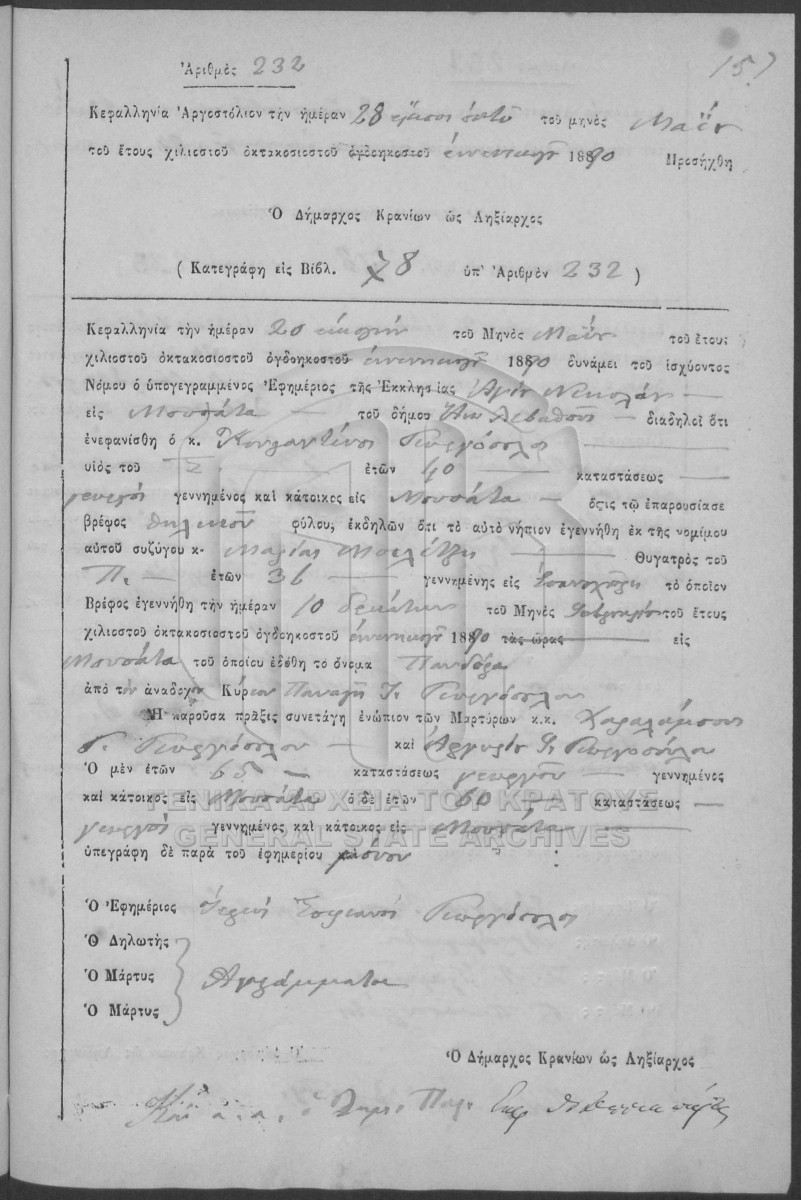 Ἀριθμὸς 232
157
Κεφαλληνία Ἀργοστόλιον τὴν ἡμέραν 28 εἴκοσι ὀκτὼ τοῦ μηνὸς Μαΐου
τοῦ ἔτους χιλιοστοῦ ὀκτακοσιοστοῦ ὀγδοηκοστοῦ ἐννενηκοστοῦ 1890 Προσήχθη
Ὁ Δήμαρχος Κρανίων ὡς Ληξίαρχος
( Κατεγράφη εἰς Βίβλ. 78 ὑπ' Ἀριθμὸν 232 )
Κεφαλληνία τὴν ἡμέραν 20 εἰκοστὴν τοῦ Μηνὸς Μαΐου τοῦ ἔτους
χιλιοστοῦ ὀκτακοσιοστοῦ ὀγδοηκοστοῦ ἐννενηκοστοῦ 1890 δυνάμει τοῦ ἰσχύοντος
Νόμου ὁ ὑπογεγραμμένος Ἐφημέριος τῆς Ἐκκλησίας Ἁγίου Νικολάου
εἰς Μουσάτα τοῦ δήμου Λειβαθοῦς διαδηλοῖ ὅτι
ἐνεφανίσθη ὁ κ. Κωνσταντῖνος Γεωργόπουλος
υἱὸς τοῦ ἐτῶν 40 καταστάσεως
γεωργὸς γεννημένος καὶ κάτοικος εἰς Μουσάτα ὅςις τῷ ἐπαρουσίασε
βρέφος θηλυκοῦ φύλου, ἐκδηλῶν ὅτι τὸ αὐτὸ νήπιον ἐγεννήθη ἐκ τῆς νομίμου
αὐτοῦ συζύγου κ. Μαρίας Θυγατρὸς τοῦ
Π. ἐτῶν 36 γεννημένης εἰς τὸ ὁποῖον
Βρέφος ἐγεννήθη τὴν ἡμέραν 10 δεκάτην τοῦ Μηνὸς τοῦ ἔτους
χιλιοστοῦ ὀκτακοσιοστοῦ ὀγδοηκοστοῦ ἐννενηκοστοῦ 1890 τὰς ὥρας εἰς
Μουσάτα τοῦ ὁποίου ἐδόθη τὸ ὄνομα Πανδώρα
ἀπὸ τὸν ἀνάδοχον Κύριον Παναγῆ Γ. Γεωργόπουλον
Ἡ παροῦσα πρᾶξις συνετάγη ἐνώπιον τῶν Μαρτύρων κ.κ. Χαραλάμπους
Γ. Γεωργοπούλου καὶ Ἀργυρίου Γ. Γεωργοπούλου
Ὁ μὲν ἐτῶν 65 καταστάσεως γεωργοῦ γεννημένος
καὶ κάτοικος εἰς Μουσάτα ὁ δὲ ἐτῶν 60 καταστάσεως
γεωργὸς γεννημένος καὶ κάτοικος εἰς Μουσάτα
ὑπεγράφη δὲ παρὰ τοῦ ἐφημερίου μόνον
ΓΕΝΙΚΑ ΑΡΧΕΙΑ ΤΟΥ ΚΡΑΤΟΥΣ
GENERAL STATE ARCHIVES
Ὁ Ἐφημέριος Ἱερεὺς Γεωργόπουλος
Ὁ Δηλωτὴς
Ὁ Μάρτυς Ἀγράμματοι
Ὁ Μάρτυς
Ὁ Δήμαρχος Κρανίων ὡς Ληξίαρχος